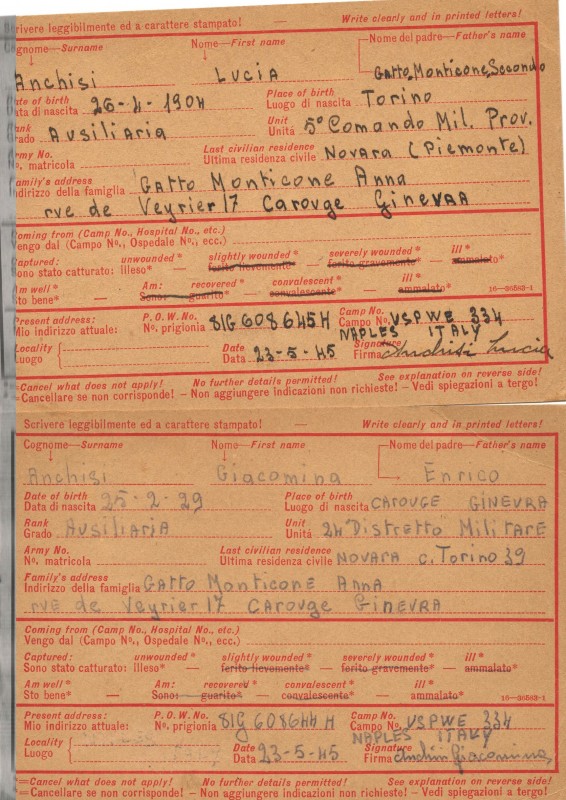 Scrivere leggibilmente ed a carattere stampato! — Write clearly and in printed letters!
Cognome—Surname Nome—First name Nome del padre—Father's name
Anchisi Lucia Gatto Monticone Secondo
Date of birth Place of birth
Data di nascita 26-4-1904 Luogo di nascita Torino
Rank Unit
Grado Ausiliaria Unità 5° Comando Mil. Prov.
Army No. Last civilian residence
No. matricola Ultima residenza civile Novara (Piemonte)
Family's address
Indirizzo della famiglia Gatto Monticone Anna
rue de Veyrier 17 Carouge Ginevra
Coming from (Camp No., Hospital No., etc.)
Vengo dal (Campo No., Ospedale No., ecc.)
Captured: unwounded* slightly wounded* severely wounded* ill*
Sono stato catturato: illeso* — ferito lievemente* — ferito gravemente* — ammalato*
Am well* Am: recovered* convalescent* ill*
Sto bene* — Sono: guarito* — convalescente* — ammalato* 16—36583-1
Present address: P.O.W. No. Camp No.
Mio indirizzo attuale: No. prigionia 81G 608645H Campo No. USPWE 334
NAPLES ITALY
Locality Date Signature
Luogo Data 23-5-45 Firma Anchisi Lucia
*=Cancel what does not apply! No further details permitted! See explanation on reverse side!
*=Cancellare se non corrisponde! — Non aggiungere indicazioni non richieste! — Vedi spiegazioni a tergo!
Scrivere leggibilmente ed a carattere stampato! — Write clearly and in printed letters!
Cognome—Surname Nome—First name Nome del padre—Father's name
Anchisi Giacomina Enrico
Date of birth Place of birth
Data di nascita 25-2-29 Luogo di nascita CAROUGE GINEVRA
Rank Unit
Grado Ausiliaria Unità 24° Distretto Militare
Army No. Last civilian residence
No. matricola Ultima residenza civile NOVARA C. Torino 39
Family's address
Indirizzo della famiglia Gatto Monticone Anna
rue de Veyrier 17 Carouge Ginevra
Coming from (Camp No., Hospital No., etc.)
Vengo dal (Campo No., Ospedale No., ecc.)
Captured: unwounded* slightly wounded* severely wounded* ill*
Sono stato catturato: illeso* — ferito lievemente* — ferito gravemente* — ammalato*
Am well* Am: recovered* convalescent* ill*
Sto bene* — Sono: guarito* — convalescente* — ammalato* 16—36583-1
Present address: P.O.W. No. Camp No.
Mio indirizzo attuale: No. prigionia 81G 608644 H Campo No. USPWE 334
NAPLES ITALY
Locality Date Signature
Luogo Data 23-5-45 Firma Anchisi Giacomina
*=Cancel what does not apply! No further details permitted! See explanation on reverse side!
*=Cancellare se non corrisponde! — Non aggiungere indicazioni non richieste! — Vedi spiegazioni a tergo!